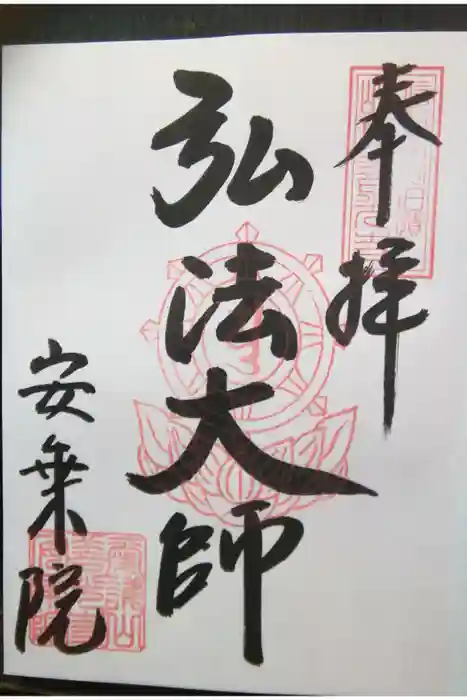 奉拝
弘法大師
安乗院